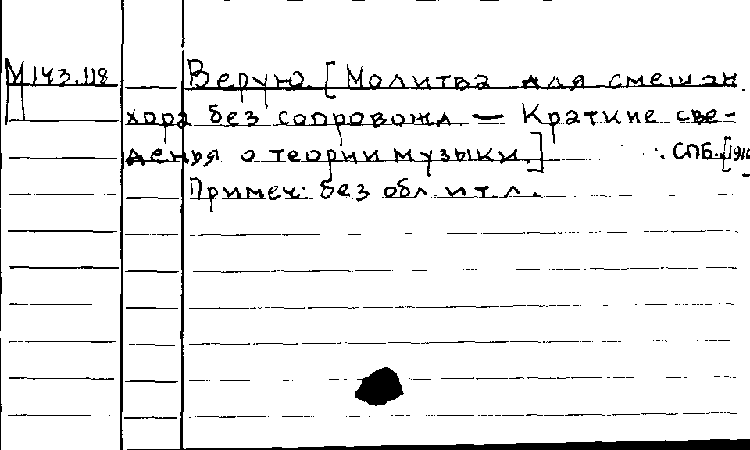 М143.118 Верую. [Молитва для смешан.
хора без сопровожд. — Краткие све-
денья о теории музыки.] СПБ.
Примеч: без обл. и т.л.